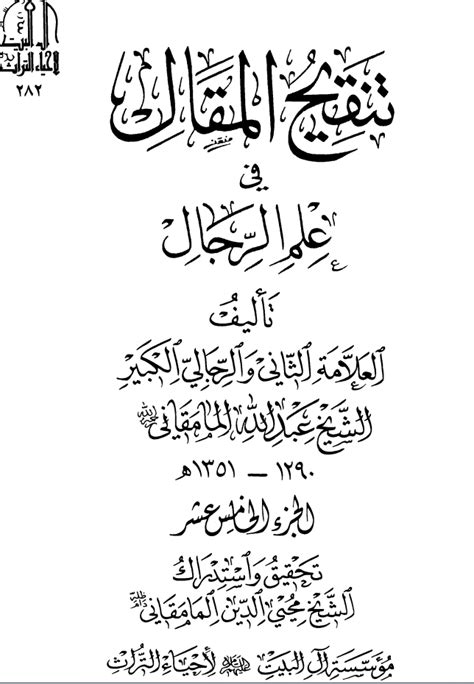 آل البيت
لإحياء التراث
٢٨٢
تَنقِيحُ المَقَالِ
في
عِلمِ الرِّجَالِ
تَأليفُ
العَلَّامَةِ الثَّاني وَالرِّجَاليِّ الكَبيرِ
الشَّيخِ عَبدِ اللّٰهِ المَامَقَانيّ
١٢٩٠ — ١٣٥١ هـ
الجزءُ الخامسَ عشر
تَحقيقُ وَاستِدرَاكُ
الشَّيخِ مُحيي الدّينِ المَامَقَانيّ
مؤسّسَة آل البيت عليهم السلام لإحياءِ التّراث